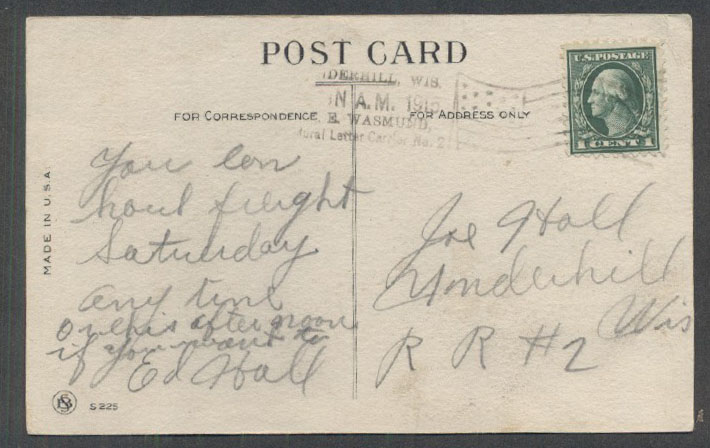 POST CARD
U.S. POSTAGE
1 CENT 1
DERHILL, WIS.
N A.M. 191
E. WASMUND,
ural Letter Carrier No. 2
FOR CORRESPONDENCE
FOR ADDRESS ONLY
MADE IN U.S.A.
You can
haul freight
Saturday
any time
or this afternoon
if you want to
Ed Hall
Joe Hall
Underhill
Wis
R R #2
S 225